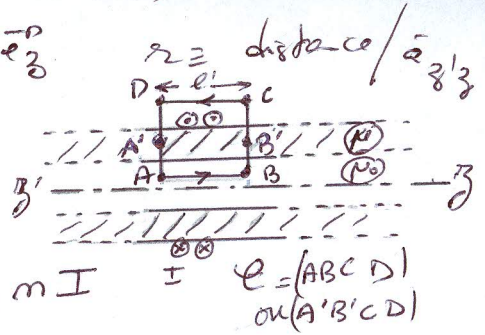 e⃗z r ≡ distance / à z'z
D l' C
A' B' μ
A B μ₀
z' z
n I I C = (ABCD)
ou (A'B'CD)